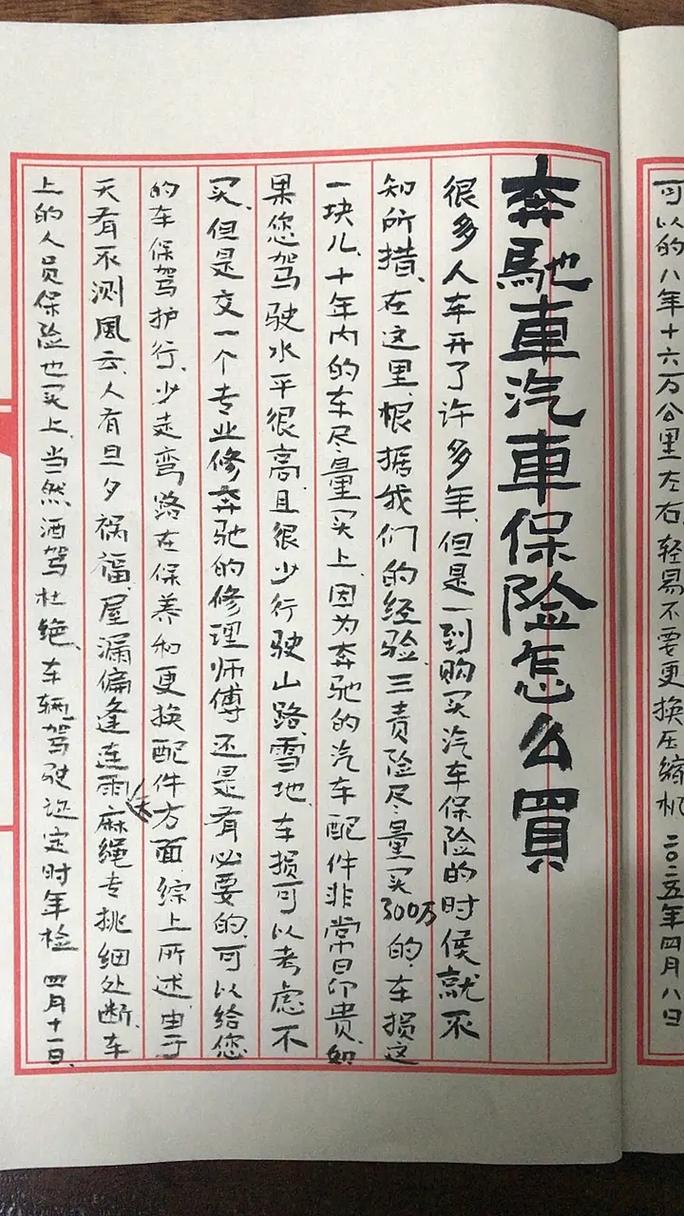 可以的八年十六万公里左右轻易不要更换压缩机 二〇二五年四月八日
奔馳車汽車保险怎么買
很多人车开了许多年、但是一到购买汽车保险的时侯就不
知所措、在这里、根据我们的经验、三责险尽量买300万的、车损这
一块儿、十年内的车尽量买上、因为奔驰的汽车配件非常昂贵、如
果您驾驶水平很高、且很少行驶山路、雪地、车损可以考虑不
买、但是交一个专业修奔驰的修理师傅、还是有必要的、可以给您
的车保驾护行、少走弯路在保养和更换配件方面、综上所述、由于
天有不测風云、人有旦夕祸福、屋漏偏逢连雨天麻绳专挑细处断、车
上的人员保险也买上、当然、酒驾杜绝、车辆驾驶证定时年检 四月十一日、